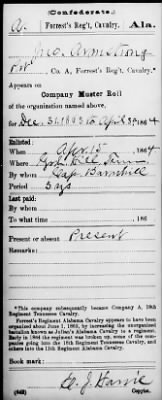 (Confederate.)
A. Forrest's Reg't, Cavalry. Ala.
Jno. Armstrong
Pvt., Co. A, Forrest's Reg't, Cavalry.*
Appears on
Company Muster Roll
of the organization named above,
for Dec. 31, 1863 to April 30, 1864
Enlisted:
When Apr. 15, 1864
Where
By whom Cap. Barnhill
Period 3 yrs
Last paid:
By whom
To what time , 186
Present or absent Present
Remarks:
*This company subsequently became Company A, 18th
Regiment Tennessee Cavalry.
Forrest's Regiment Alabama Cavalry appears to have been
organized about June 1, 1863, by increasing the unorganized
battalion known as Julian's Alabama Cavalry to a regiment.
Early in 1864 the regiment was broken up, some of the com-
panies going into the 18th Regiment Tennessee Cavalry, and
others into the Alabama Cavalry.
Book mark:
(642) Copyist.